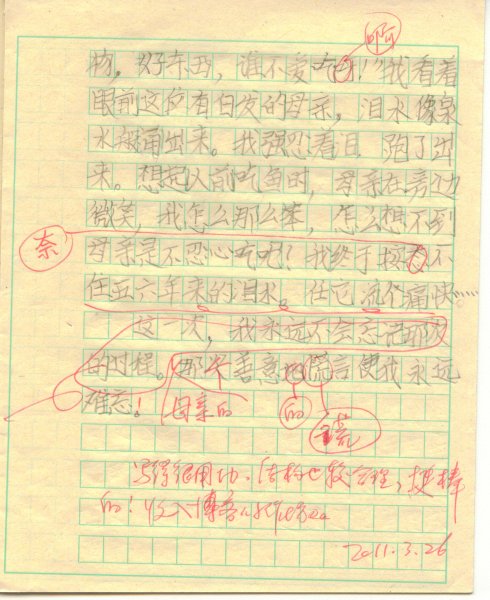 啊
物，好东西，谁不爱吃！”我看着
眼前这位有白发的母亲，泪水像泉
水般涌出来。我强忍着泪，跑了出
来。想起以前吃鱼时，母亲在旁边
微笑，我怎么那么笨，怎么想不到
奈
母亲是不忍心吃呢！我终于按 不
住五六年来的泪水。任它流个痛快……
这一次，我永远不会忘记那次
的时程。那个善意的谎言使我永远
难忘！
母亲的
的
谎
写得很用功，结构也较合理，更棒
的！收入博客
2011.3.26